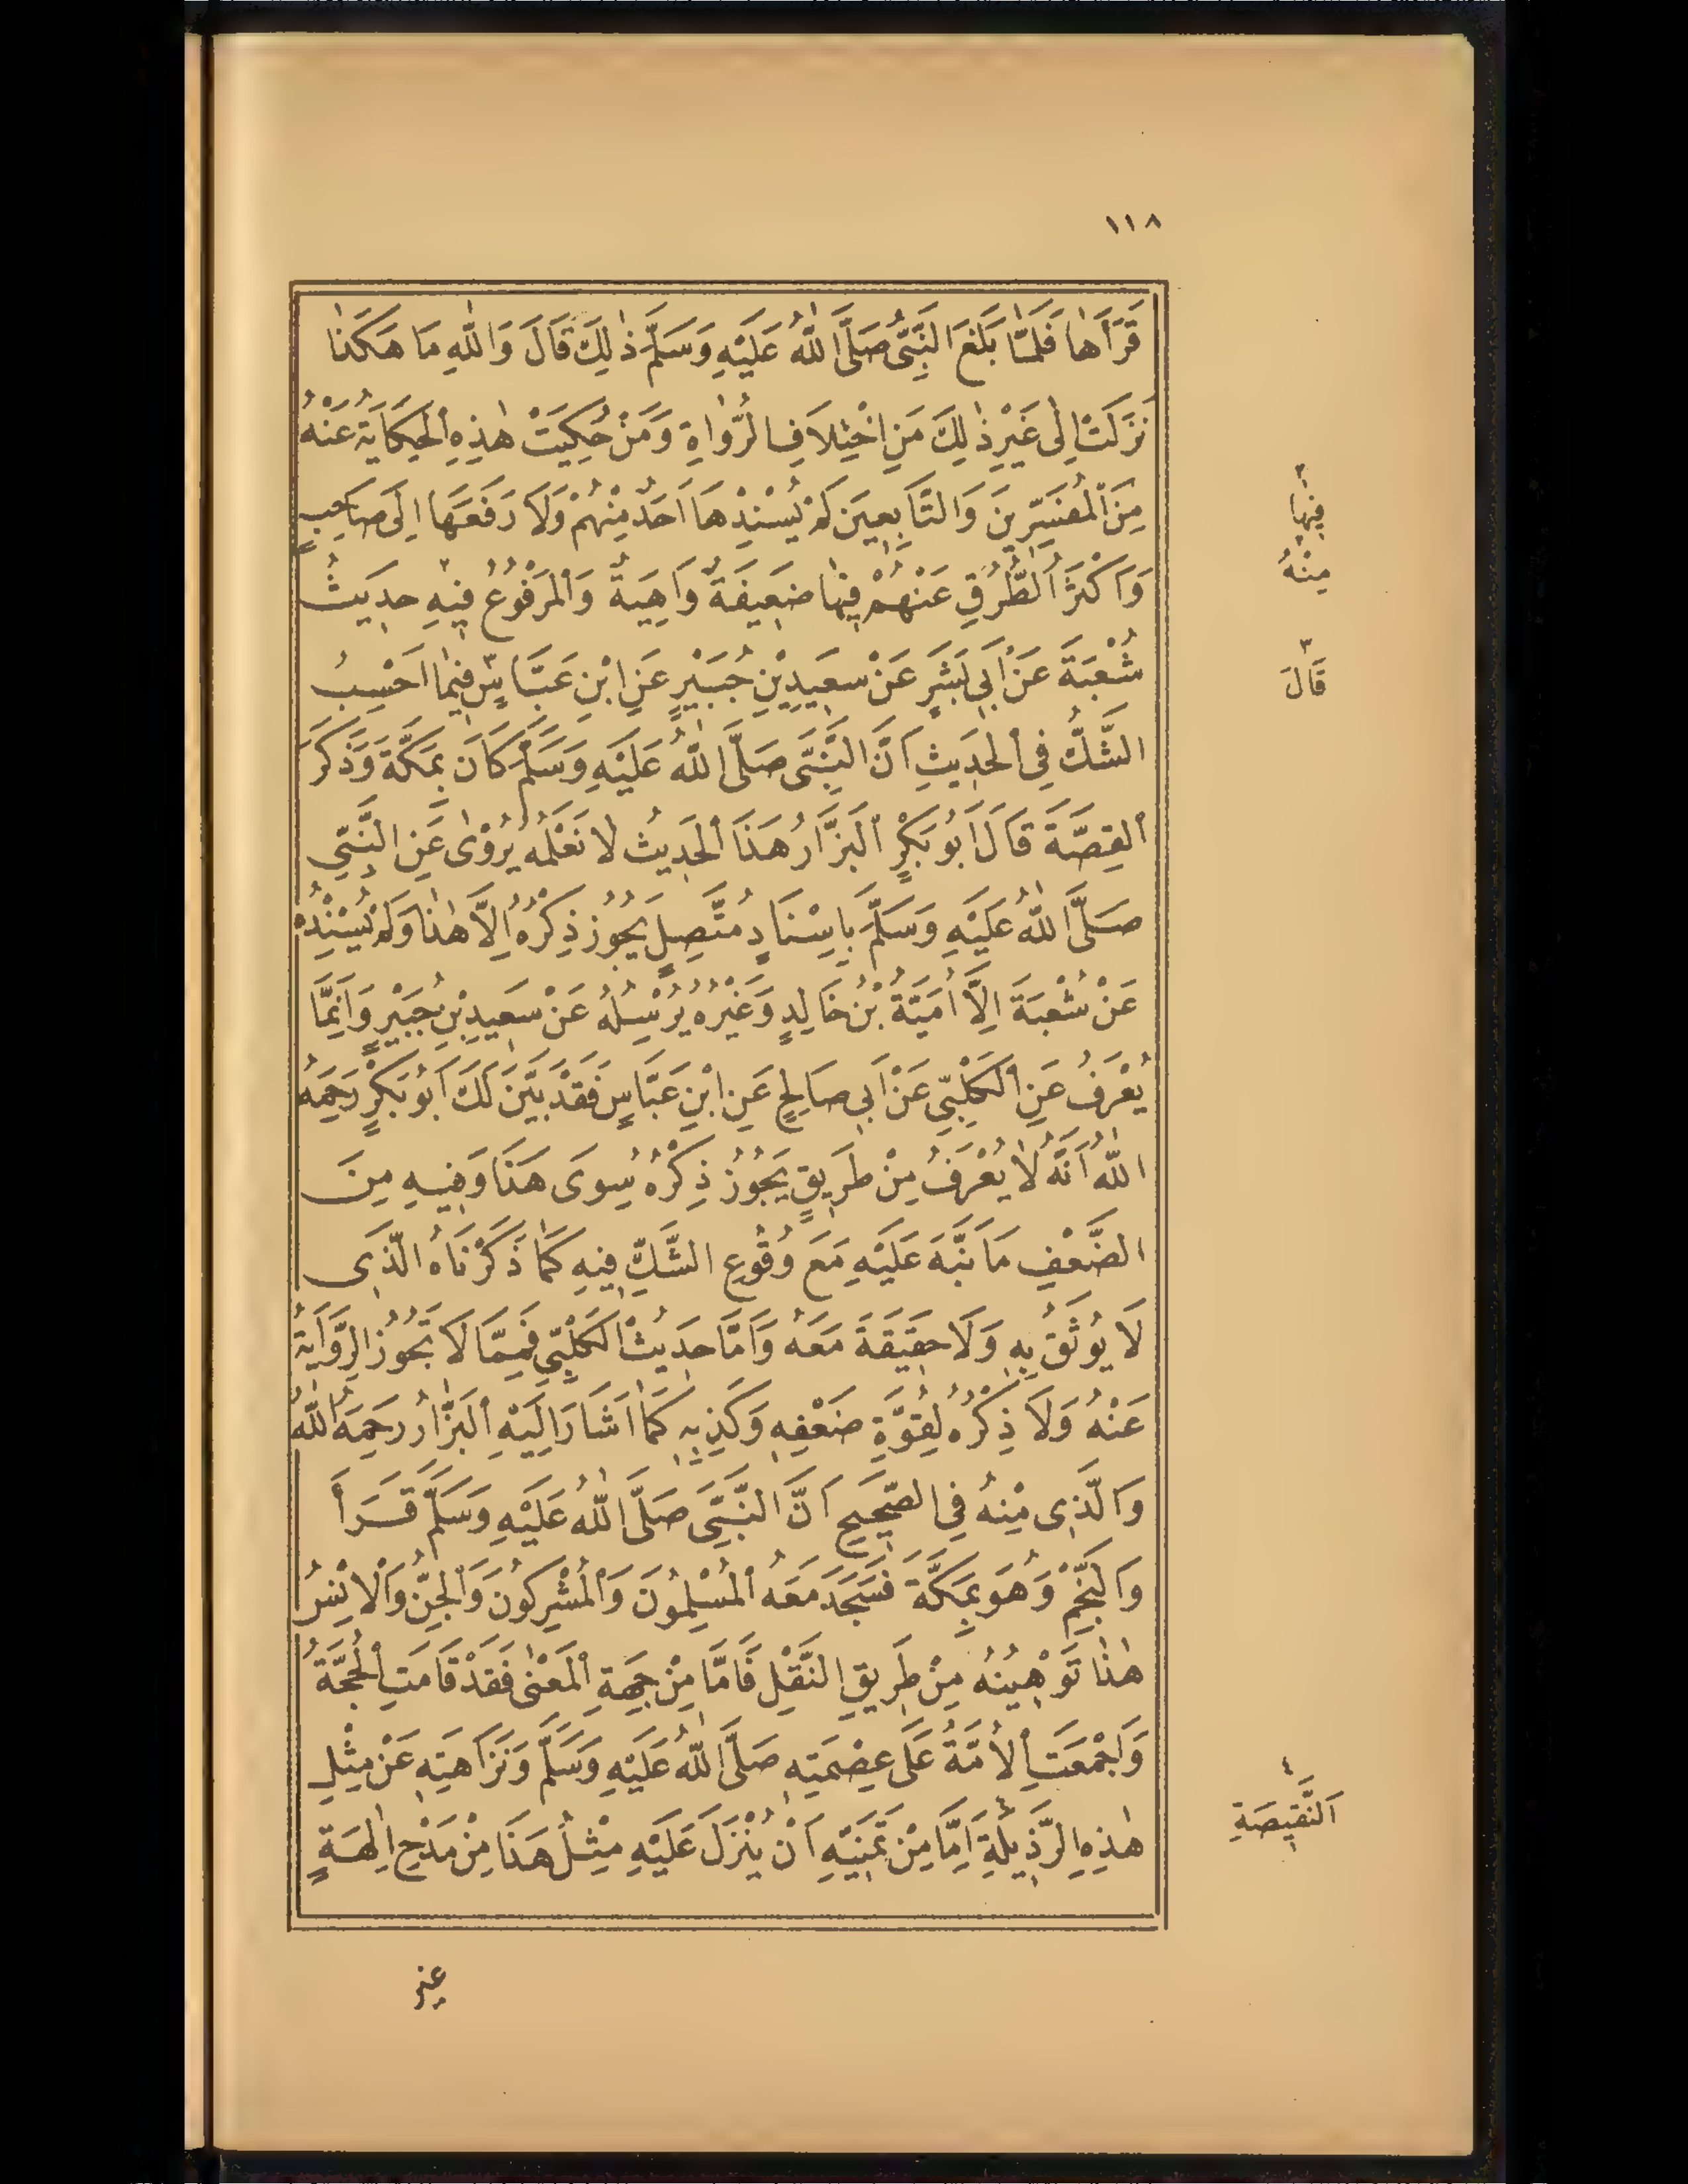 ١١٨
قَرَأَهَا فَلَمَّا بَلَغَ النَّبِىَّ صَلَّى اللّٰهُ عَلَيْهِ وَسَلَّمَ ذٰلِكَ قَالَ وَاللّٰهِ مَا هَكَذٰا
نَزَلَتْ اِلٰى غَيْرِ ذٰلِكَ مَنِ اخْتِلاَفِ الرُّوٰاةِ وَمَنْ حُكِيَتْ هٰذِهِ الْحِكَايَةُ عَنْهُ
مِنَ الْمُفَسِّرِينَ وَالتَّابِعِينَ لَمْ يُسْنِدْهَا اَحَدٌ مِنْهُمْ وَلاَ رَفَعَهَا اِلَى صَاحِبٍ
وَاَكْثَرُ الطُّرُقِ عَنْهُمْ فِيهٰا ضَعِيفَةٌ وَاهِيَةٌ وَالْمَرْفُوعُ فِيهِ حَدِيثُ
شُعْبَةَ عَنْ أَبِى بَشَرٍ عَنْ سَعِيدِ بْنِ جُبَيْرٍ عَنِ ابْنِ عَبَّاسٍ فِيمٰا اَحْسِبُ
الشَّكُّ فِى الْحَدِيثِ اَنَّ النَّبِىَّ صَلَّى اللّٰهُ عَلَيْهِ وَسَلَّمَ كَانَ بِمَكَّةَ وَذَكَرَ
الْقِصَّةَ قَالَ اَبُو بَكْرٍ الْبَزَّارُ هَذَا الْحَدِيثُ لاَ نَعْلَمُهُ يُرْوٰى عَنِ النَّبِىِّ
صَلَّى اللّٰهُ عَلَيْهِ وَسَلَّمَ بِاِسْنَادٍ مُتَّصِلٍ يَجُوزُ ذِكْرُهُ اِلَّا هٰذٰا وَلَمْ يُسْنِدْهُ
عَنْ شُعْبَةَ اِلَّا اُمَيَّةُ بْنُ خَالِدٍ وَغَيْرُهُ يُرْسِلُهُ عَنْ سَعِيدِ بْنِ جُبَيْرٍ وَاِنَّمَا
يُعْرَفُ عَنِ الْكَلْبِىِّ عَنْ اَبِى صَالِحٍ عَنِ ابْنِ عَبَّاسٍ فَقَدْ بَيَّنَ لَكَ اَبُو بَكْرٍ رَحِمَهُ
اللّٰهُ اَنَّهُ لاَ يُعْرَفُ مِنْ طَرِيقٍ يَجُوزُ ذِكْرُهُ سِوَى هَذَا وَفِيهِ مِنَ
الضَّعْفِ مَا نَبَّهَ عَلَيْهِ مَعَ وُقُوعِ الشَّكِّ فِيهِ كَمَا ذَكَرْنَاهُ الَّذِى
لَا يُوثَقُ بِهِ وَلَا حَقِيقَةَ مَعَهُ وَاَمَّا حَدِيثُ الْكَلْبِىِّ فَمِمَّا لَا تَجُوزُ الرِّوَايَةُ
عَنْهُ وَلَا ذِكْرُهُ لِقُوَّةِ ضَعْفِهِ وَكَذِبِهِ كَمَا اَشَارَ اِلَيْهِ الْبَزّٰارُ رَحِمَهُ اللّٰهُ
وَالَّذِى مِنْهُ فِى الصَّحِيحِ اَنَّ النَّبِىَّ صَلَّى اللّٰهُ عَلَيْهِ وَسَلَّمَ قَرَأَ
وَالنَّجْمِ وَهُوَ بِمَكَّةَ فَسَجَدَ مَعَهُ الْمُسْلِمُونَ وَالْمُشْرِكُونَ وَالْجِنُّ وَالْاِنْسُ
هٰذٰا تَوْهِينُهُ مِنْ طَرِيقِ النَّقْلِ فَاَمَّا مِنْ جِهَةِ الْمَعْنٰى فَقَدْ قَامَتِ الْحُجَّةُ
وَاَجْمَعَتِ الْاُمَّةُ عَلَى عِصْمَتِهِ صَلَّى اللّٰهُ عَلَيْهِ وَسَلَّمَ وَنَزَاهَتِهِ عَنْ مِثْلِ
هٰذِهِ الرَّذِيلَةِ ٤ اِمَّا مِنْ تَمَنِّيهِ اَنْ يُنْزَلَ عَلَيْهِ مِثْلُ هَذَا مِنْ مَدْحِ اٰلِهَةٍ
٢
فِيهٰا
مِنْهُ
٣
قَالَ
٤
اَلنَّقِيصَةِ
غير